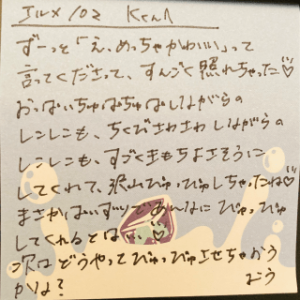 ずーっと「え、めっちゃかわいい」って
言ってくださって、すんごく照れちゃった♡
おっぱいちゅぱちゅぱしながらの
しこしこも、ちくびさわさわしながらの
しこしこも、すごくきもちよさそうに
してくれて、沢山ぴゅっぴゅしちゃったね♡
まさかぱいずりであんなにぴゅっぴゅ
してくれるとは…♡
次はどうやってぴゅっぴゅさせちゃおう
かな?